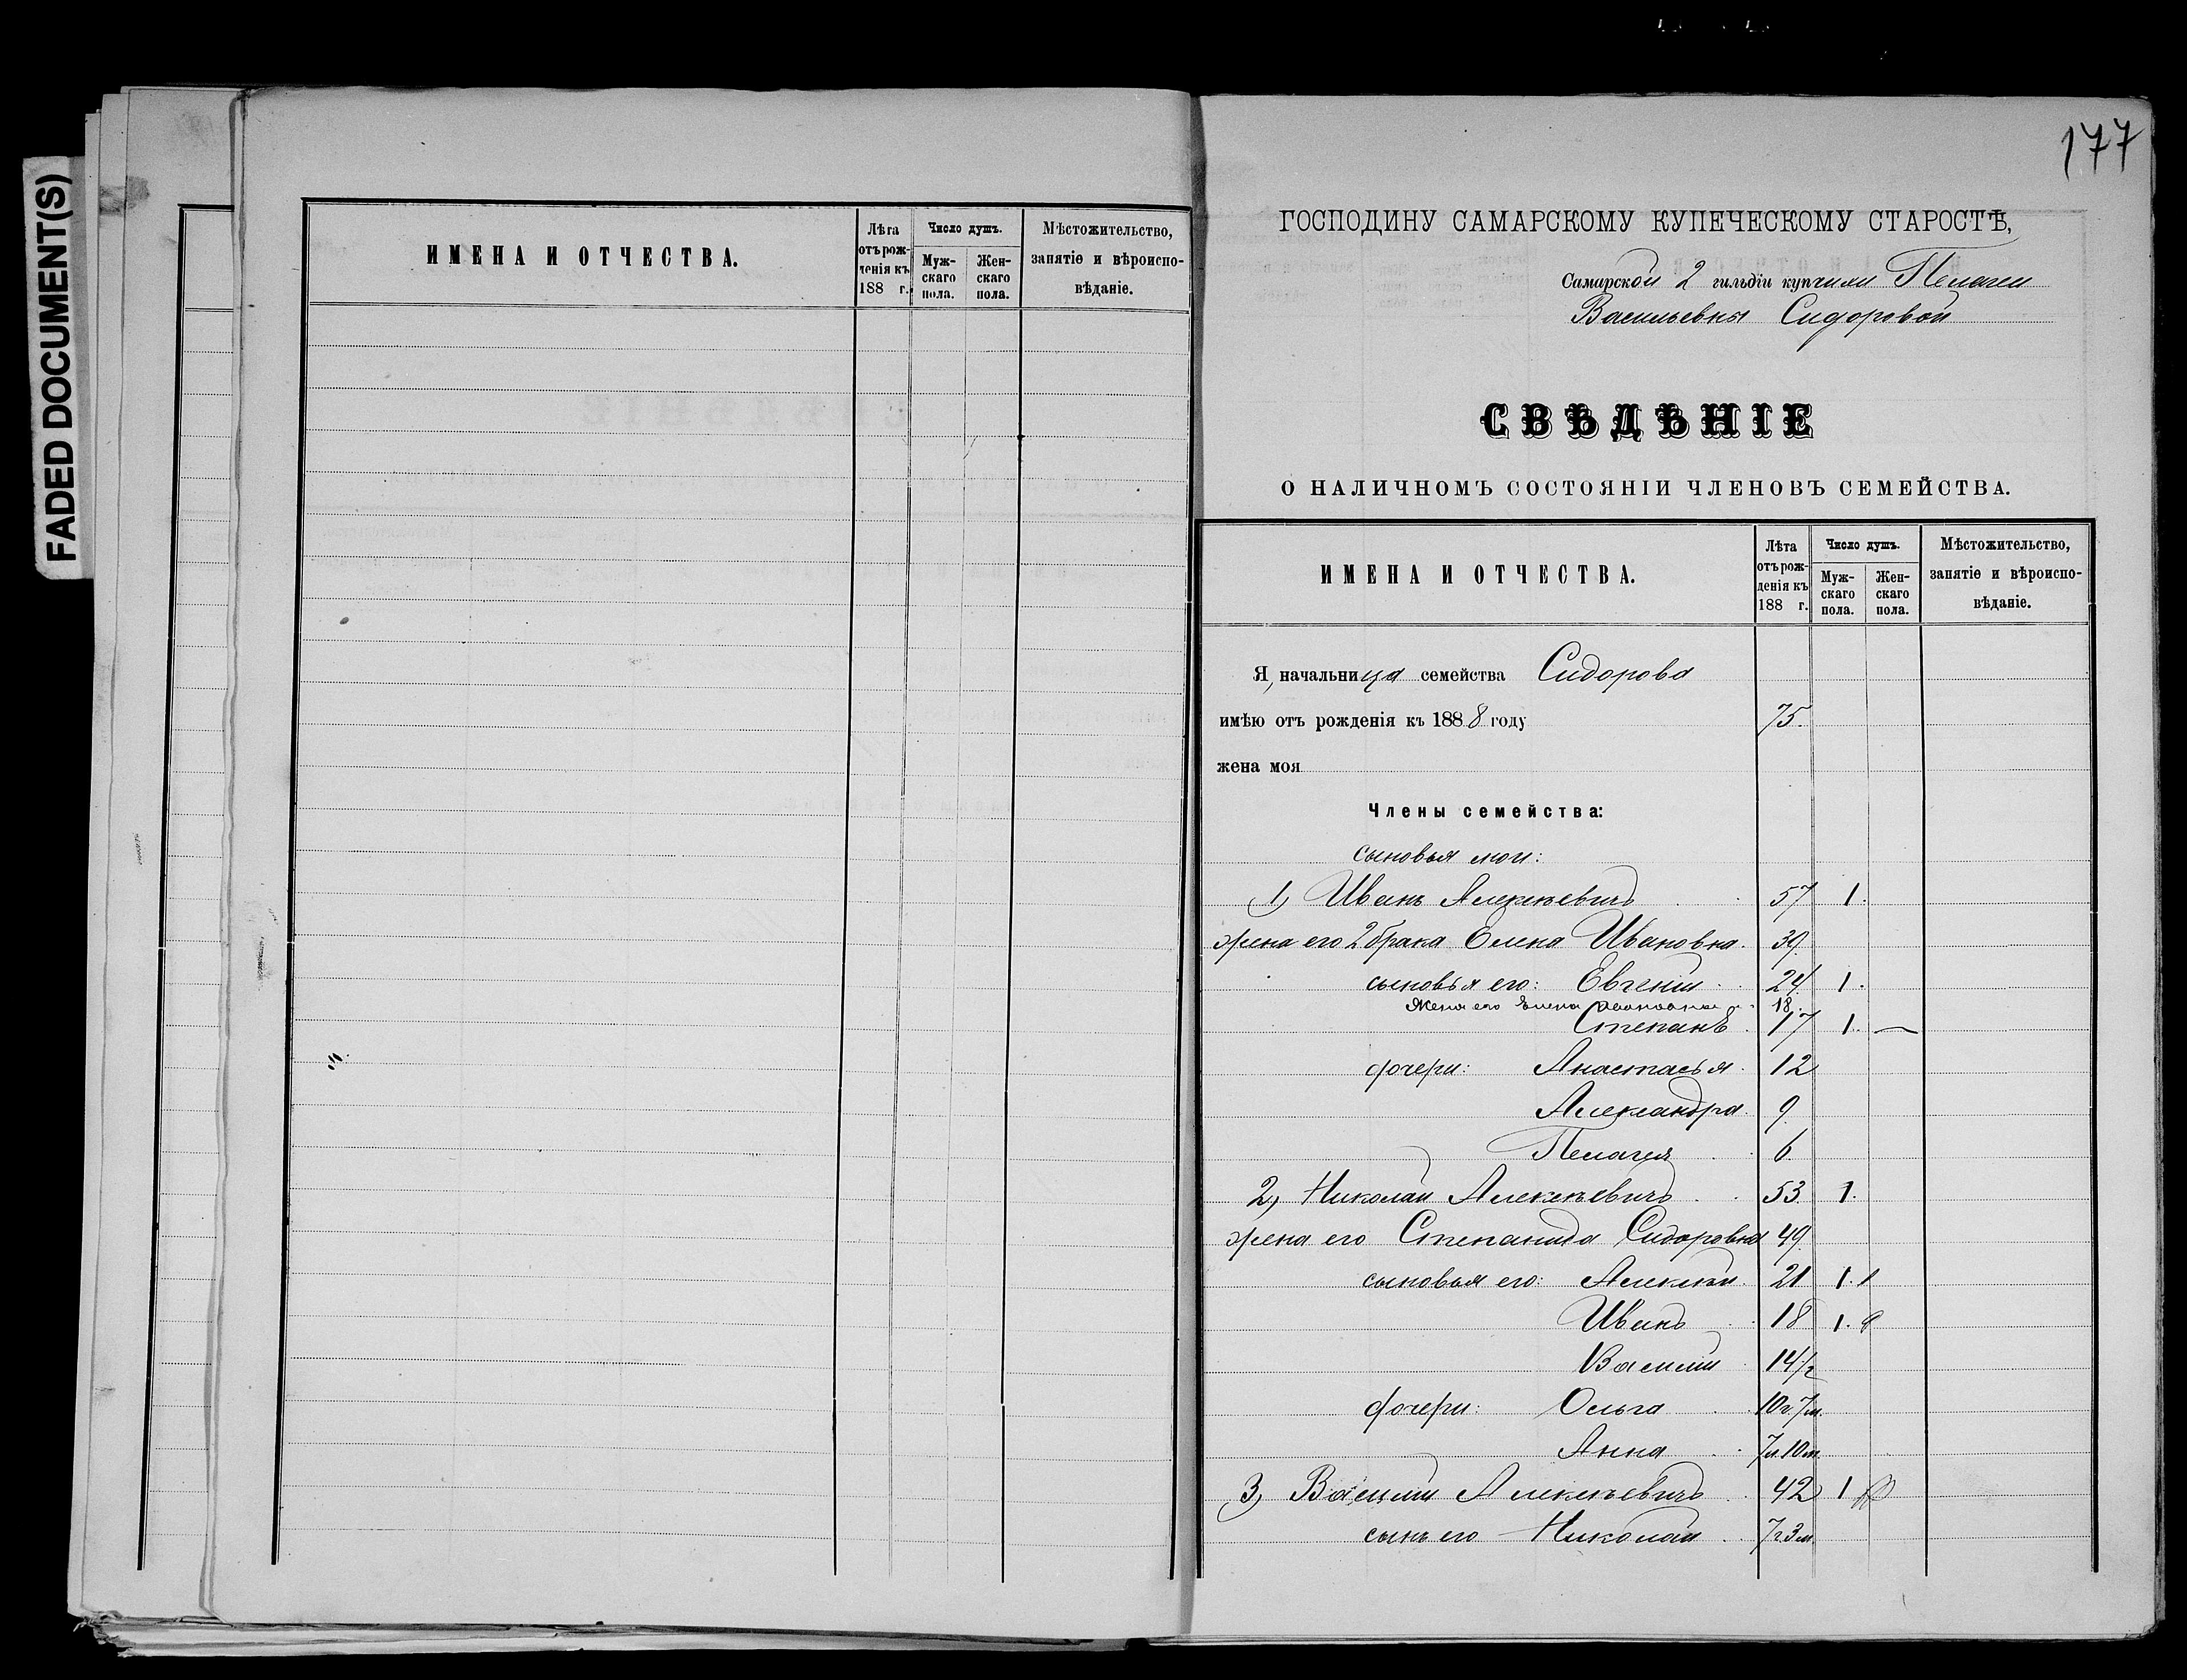 FADED DOCUMENT(S)
ИМЕНА И ОТЧЕСТВА.
Лѣта
отъ рож-
денія къ
188 г.
Число душъ.
Муж-
скаго
пола.
Жен-
скаго
пола.
Мѣстожительство,
занятіе и вѣроиспо-
вѣданіе.
177
ГОСПОДИНУ САМАРСКОМУ КУПЕЧЕСКОМУ СТАРОСТѢ,
Самарской 2 гильдіи купчихи Пелагеи
Васильевны Сидоровой
СВѢДѢНІЕ
О НАЛИЧНОМЪ СОСТОЯНІИ ЧЛЕНОВЪ СЕМЕЙСТВА.
ИМЕНА И ОТЧЕСТВА.
Лѣта
отъ рож-
денія къ
188 г.
Число душъ.
Муж-
скаго
пола.
Жен-
скаго
пола.
Мѣстожительство,
занятіе и вѣроиспо-
вѣданіе.
Я, начальница семейства Сидорова
имѣю отъ рожденія къ 1888 году 75.
жена моя
Члены семейства:
сыновья мои:
1) Иванъ Алексѣевичъ 57 1.
жена его 2 брака Елена Ивановна. 39.
сыновья его: Евгеній 24 1.
Жена его Елена Ивановна 18.
Степанъ 17 1. —
дочери: Анастасья 12
Александра 9
Пелагея 6
2) Николай Алексѣевичъ 53 1.
жена его Степанида Сидоровна 49.
сыновья его: Алексѣй 21 1. 1
Иванъ 18 1.
Василій 14 1/2
дочери: Ольга 10 г. 7 м.
Анна 7 л. 10 м.
3) Василій Алексѣевичъ 42 1
сынъ его Николай 7 г. 3 м.